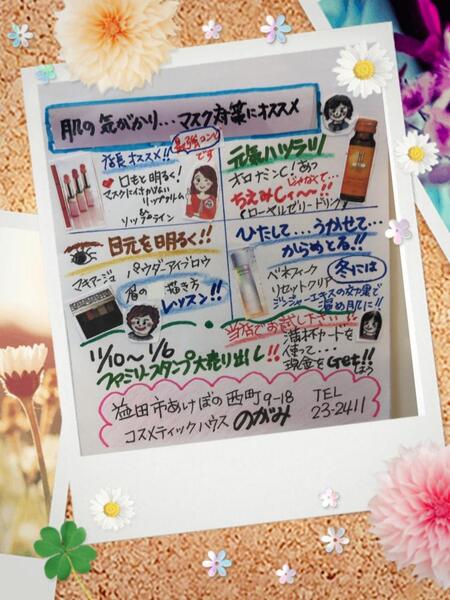 肌の気がかり...マスク対策にオススメ
最強コンビです
店長オススメ!!
口もと明るく!
マスクに付かない
リップクリーム
リップライン
元気ハツラツ
オロナミンC!あっ
じゃなくて...
ちえみCィ〜!!
(ローヤルゼリードリンク)
目元を明るく!!
マキアージュ パウダーアイブロウ
眉の描き方
レッスン!!
ひたして...うかせて...
からめとる!!
ベネフィーク
リセットクリア
冬には
ジンジャーエキスの効果で
温め肌に!!
11/10〜1/6
ファミリースタンプ大売り出し!!
当店でお試し下さい!!
満杯カードを
使って...
現金をGet!!
しよう
益田市あけぼの西町9-18
コスメティックハウス のがみ
TEL
23-2411